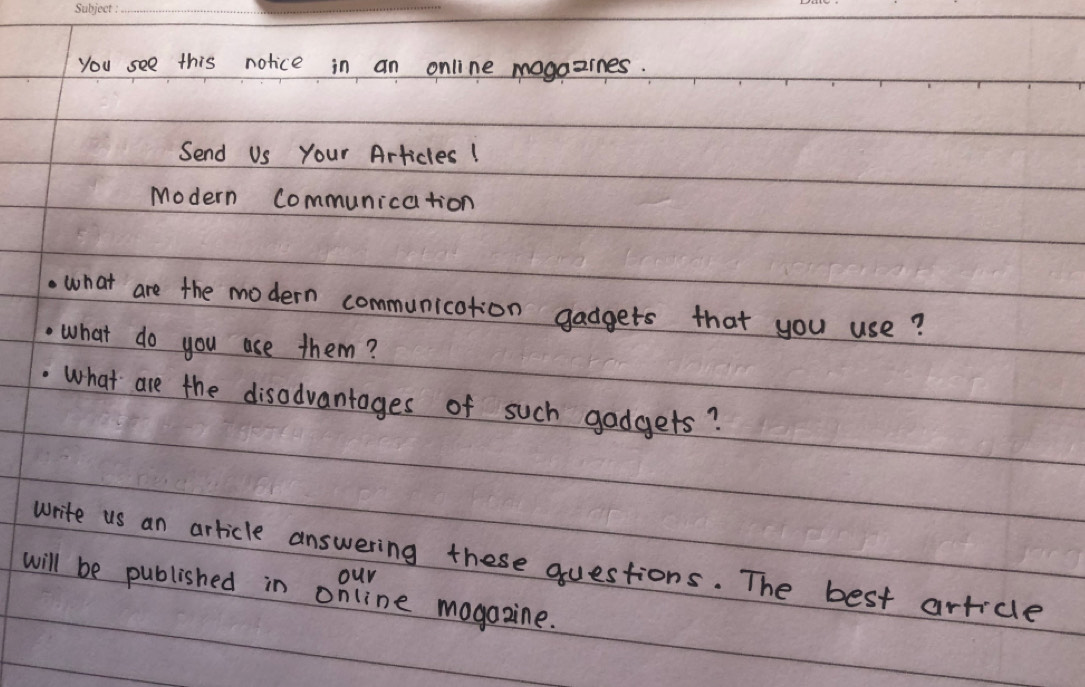 Subject :
You see this notice in an online magazines.
Send Us Your Articles !
Modern Communication
• What are the modern communication gadgets that you use ?
• What do you use them ?
• What are the disadvantages of such gadgets ?
Write us an article answering these questions. The best article
will be published in our online magazine.